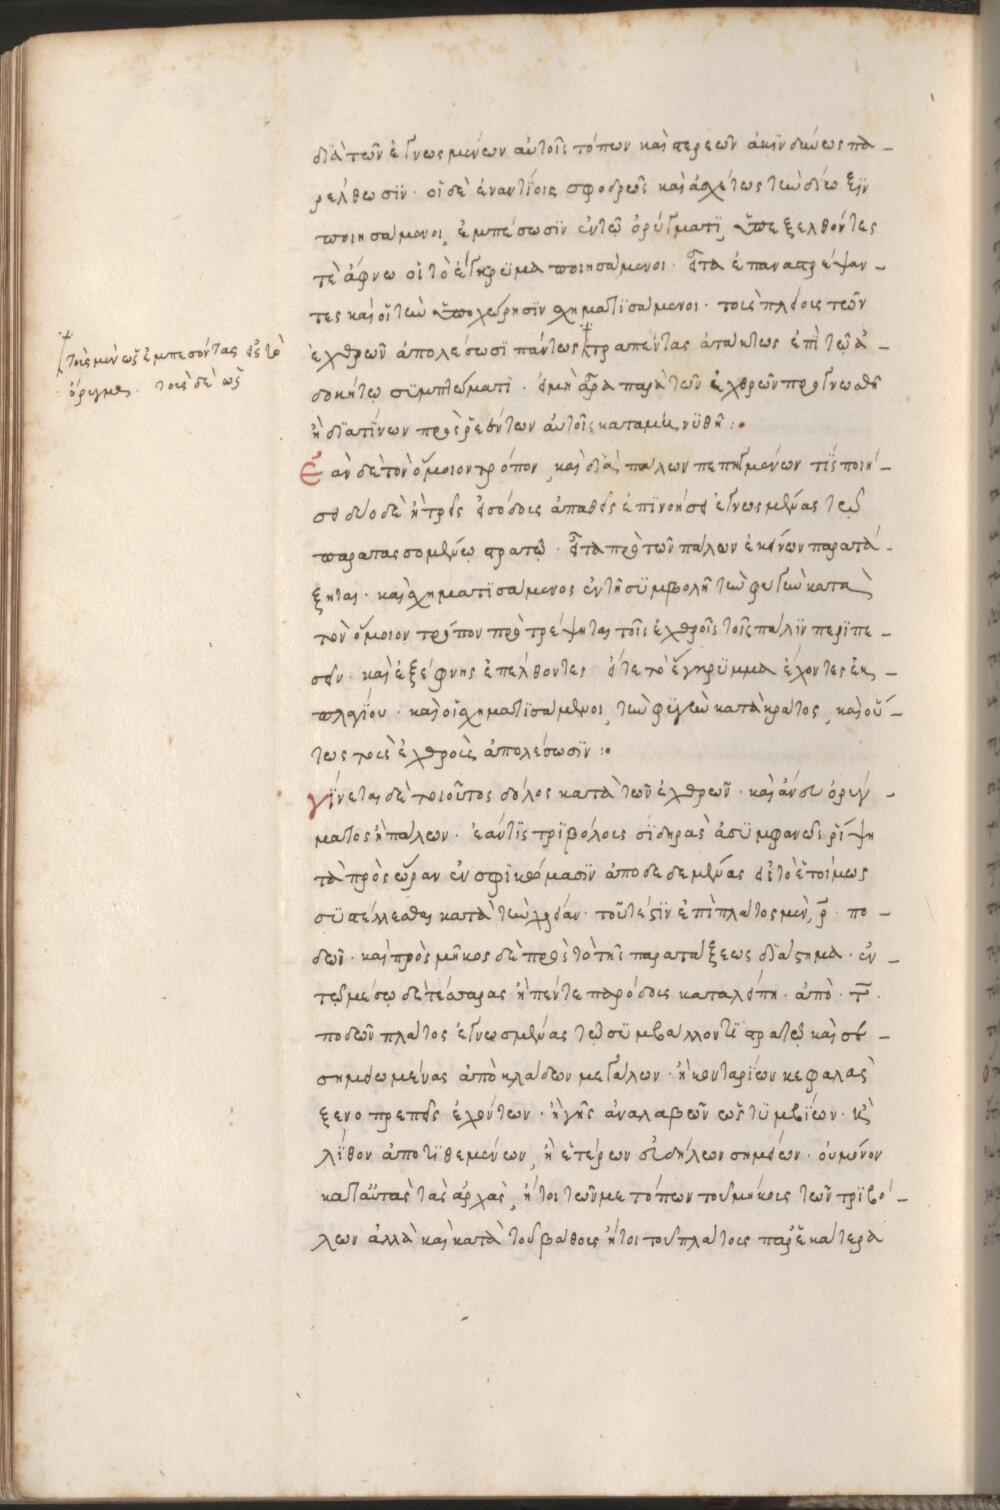 διὰ τῶν ἐγνωσμένων αὐτοῖς τόπων καὶ στερεῶν ἀκινδύνως πα-
ρέλθωσιν · οἱ δὲ ἐναντίοι σφοδρῶς καὶ ἀσχέτως τὴν δίωξιν
ποιησάμενοι, ἐμπέσωσιν ἐν τῷ ὀρύγματι, ὑπεξελθόντες
τὲ ἄφνω οἱ τὸ ἔγκρυμα ποιησάμενοι · εἶτα ἐπαναστρέψαν-
τες καὶ οἱ τὴν ὑποχώρησιν σχηματισάμενοι · τοὺς πλείους τῶν
ἐχθρῶν ἀπολέσωσι πάντως τραπέντας ἀτάκτως ἐπὶ τῷ ἀ-
δοκήτῳ συμπτώματι · εἰ μὴ ἄρα παρὰ τῶν ἐχθρῶν προγνωσθῇ
ἢ διά τινων προσρεόντων αὐτοῖς καταμηνυθῇ :
τοὺς μὲν ὡς ἐμπεσόντας εἰς τὸ
ὄρυγμα. τοὺς δὲ ὡς
Ἐὰν δὲ τὸν ὅμοιον τρόπον, καὶ διὰ πάλων πεπηγμένων τίς ποιή-
σει δύο δὲ ἢ τρεῖς εἰσόδους ἀπαθεῖς ἐπινοήσει ἐγνωσμένας τῷ
παρατασσομένῳ στρατῷ · εἶτα πρὸ τῶν πάλων ἐκείνων παρατά-
ξηται · καὶ σχηματισάμενος ἐν τῇ συμβολῇ τὴν φυγὴν κατὰ
τὸν ὅμοιον τρόπον προτρέψηται τοῖς ἐχθροῖς τοῖς πάλιν περιπε-
σεῖν · καὶ ἐξέφνης ἐπελθόντες οἵ τε τὸ ἔγκρυμμα ἔχοντες ἐκ
πλαγίου · καὶ οἱ σχηματισάμενοι, τὴν φυγὴν κατὰ κράτος, καὶ οὕ-
τως τοὺς ἐχθροὺς ἀπολέσωσιν :
γίνεται δὲ τοιοῦτος δόλος κατὰ τῶν ἐχθρῶν · καὶ ἄνευ ὀρύγ-
ματος ἢ πάλων · ἐάν τις τριβόλους σιδηρᾶς ἀσυμφανῶς ῥίψῃ
τὰ πρὸς ὥραν ἐν σφικώμασιν ἀποδεδεμένας εἰς τὸ ἑτοίμως
συστέλλεσθαι κατὰ τὴν χρείαν · τουτέστιν ἐπὶ πλάτος μὲν, ρ · πο-
δῶν · καὶ πρὸς μῆκος δὲ πρὸς τὸ τῆς παρατάξεως διάστημα · ἐν
τῷ μέσῳ δὲ τέσσαρας ἢ πέντε παρόδους καταλείπῃ · ἀπὸ · τ ·
ποδῶν πλάτος ἐγνωσμένας τῷ συμβάλλοντι στρατῷ καὶ σε-
σημειωμένας ἀπὸ κλάδων μεγάλων · ἢ κονταρίων κεφαλὰς
ξενοπρεπεῖς ἐχόντων · ἢ γῆς ἀναλαβῶν ὡς τυμβίων · ἢ
λίθον ἀποτιθεμένων, ἢ ἑτέρων εὐδήλων σημείων · οὐ μόνον
κατ' αὐτὰς τὰς ἀρχὰς, ἤτοι τῶν μετόπων τοῦ μήκους τῶν τριβό-
λων ἀλλὰ καὶ κατὰ τοῦ βάθους ἤτοι τοῦ πλάτους παρ' ἑκάτερα